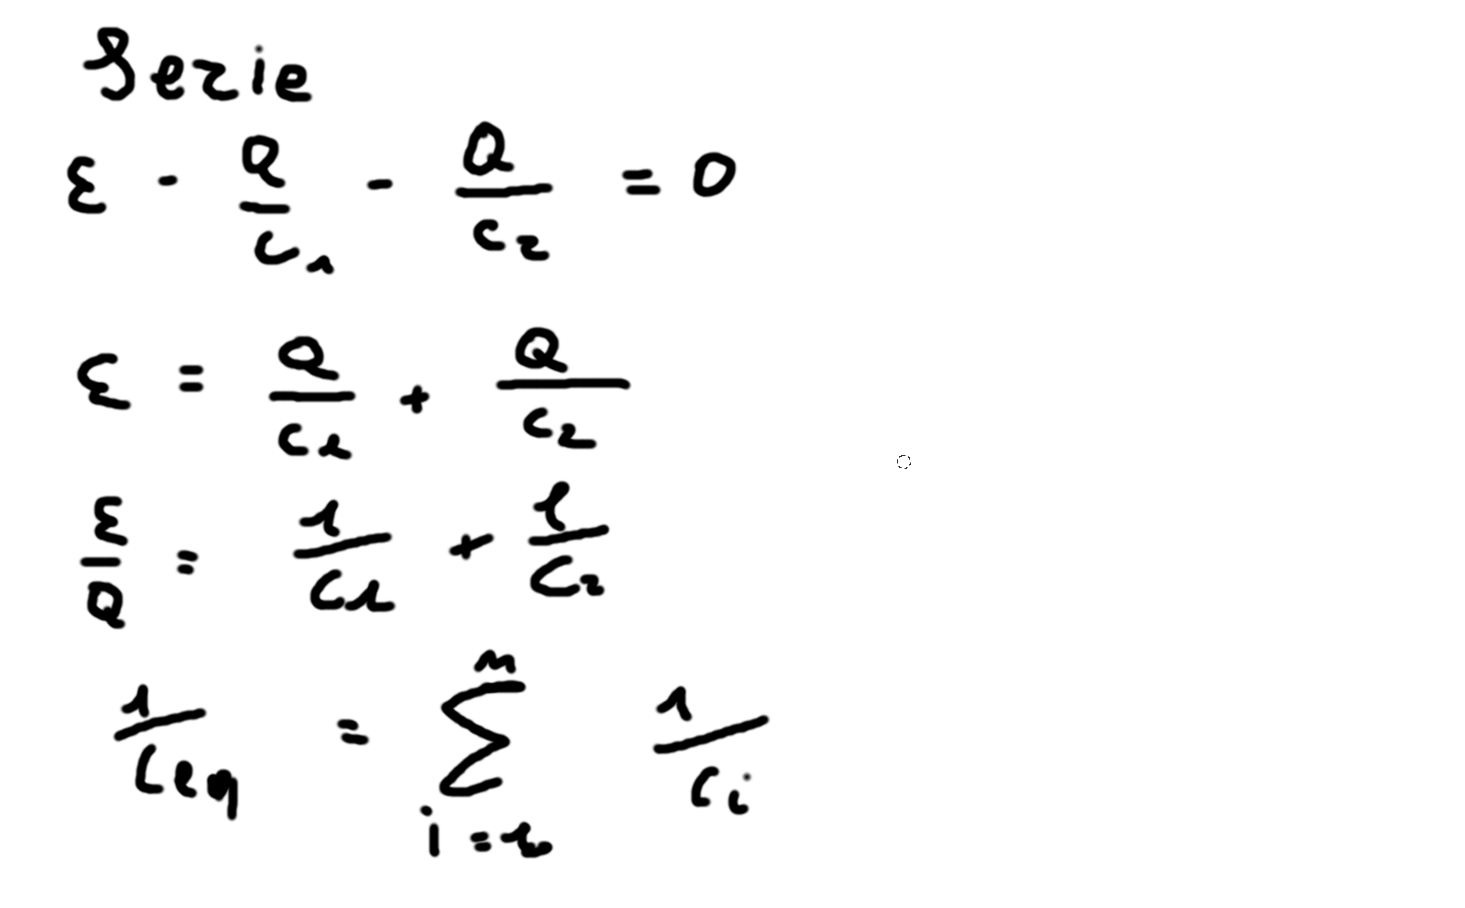 Serie
ε - Q/C₁ - Q/C₂ = 0
ε = Q/C₁ + Q/C₂
ε/Q = 1/C₁ + 1/C₂
1/Ceq = ∑ⁿᵢ₌₁ 1/Cᵢ